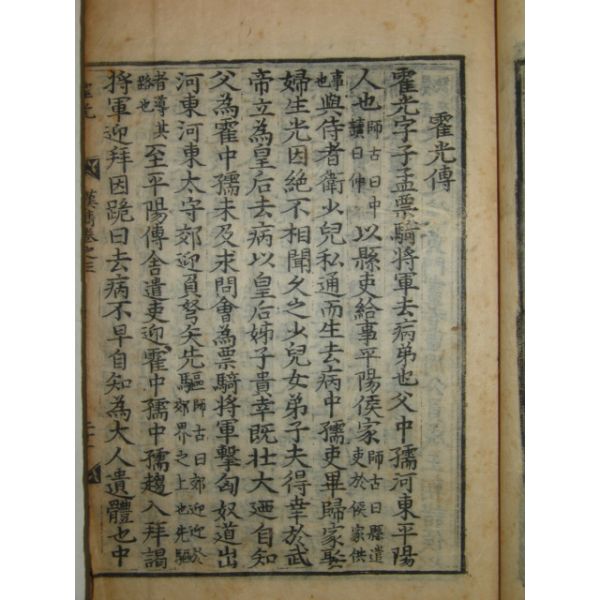 霍光傳
霍光字子孟票騎將軍去病弟也父中孺河東平陽
人也師古曰中讀曰仲以縣吏給事平陽侯家師古曰縣遣吏於侯家供
事也與侍者衛少兒私通而生去病中孺吏畢歸家娶
婦生光因絶不相聞久之少兒女弟子夫得幸於武
帝立為皇后去病以皇后姊子貴幸既壯大迺自知
父為霍中孺未及求問會為票騎將軍擊匈奴道出
河東河東太守郊迎負弩矢先驅師古曰郊迎迎於郊界之上也先驅
者導其路也至平陽傳舍遣吏迎霍中孺中孺趨入拜謁
將軍迎拜因跪曰去病不早自知為大人遺體也中
霍光 漢雋卷之三